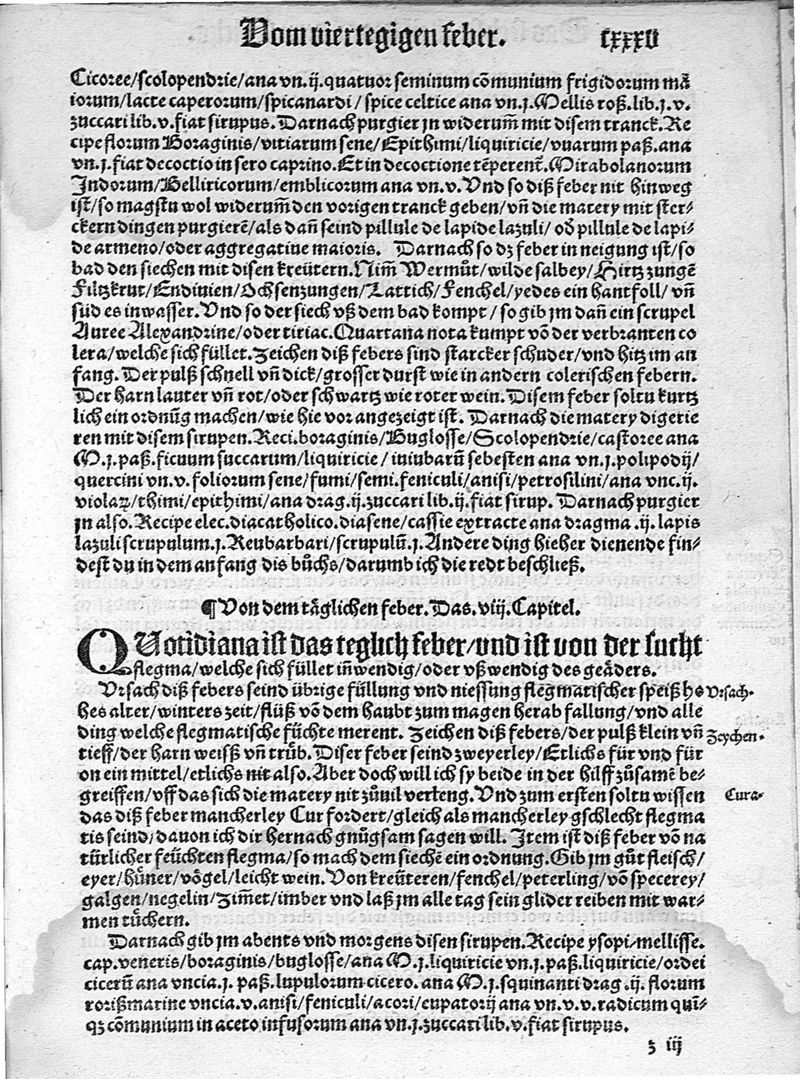 Vom viertegigen feber. cxxxv
Cicoree/scolopendrie/ana vn.ij.quatuor seminum cōmunium frigidorum mā
iorum/lacte caperorum/spicanardi/spice celtice ana vn.j.Mellis roß.lib.j.v.
zuccari lib.v.fiat sirupus.Darnach purgier jn widerum̄ mit disem tranck.Re
cipe florum Boraginis/vitiarum sene/Epithimi/liquiricie/vuarum paß.ana
vn.j.fiat decoctio in sero caprino.Et in decoctione tēperent̄.Mirabolanorum
Indorum/Belliricorum/emblicorum ana vn.v.Vnd so diß feber nit hinweg
ist/so magstu wol widerum̄ den vorigen tranck geben/vn̄ die matery mit ster⸗
ckern dingen purgierē/als dan̄ seind pillule de lapide lazuli/od̕ pillule de lapi⸗
de armeno/oder aggregatiue maioris. Darnach so dz feber in neigung ist/so
bad den siechen mit disen kreütern.Nim̄ Wermůt/wilde salbey/Hirtzzungē
Filtzkrut/Endiuien/Ochsenzungen/Lattich/Fenchel/yedes ein hantfoll/vn̄
süd es in wasser.Vnd so der siech vß dem bad kompt/so gib jm dan̄ ein scrupel
Auree Alexandrine/oder tiriac.Quartana nota kumpt vō der verbranten co
lera/welche sich füllet.Zeichen diß febers sind starcker schuder/vnd hitz im an
fang. Der pulß schnell vn̄ dick/grosser durst wie in andern colerischen febern.
Der harn lauter vn̄ rot/oder schwartz wie roter wein. Disem feber soltu kurtz
lich ein ordnūg machen/wie hie vor angezeigt ist. Darnach die matery digerie
ren mit disem sirupen.Reci.boraginis/Buglosse/Scolopendrie/castoree ana
M.j.paß.ficuum succarum/liquiricie/iuiubarū sebesten ana vn.j.polipodij/
quercini vn.v.foliorum sene/fumi/semi.feniculi/anisi/petrosilini/ana vnc.ij.
violaꝝ/thimi/epithimi/ana drag.ij.zuccari lib.ij.fiat sirup. Darnach purgier
jn also. Recipe elec.diacatholico.diasene/cassie extracte ana dragma.ij.lapis
lazuli scrupulum.j.Reubarbari/scrupulū.j.Andere ding hieher dienende fin⸗
dest du in dem anfang dis bůchs/darumb ich die redt beschließ.
¶ Von dem täglichen feber. Das. viij. Capitel.
QUotidiana ist das teglich feber/vnd ist von der sucht
flegma/welche sich füllet in̄wendig/oder vßwendig des geäders.
Vrsach diß febers seind übrige füllung vnd niessung flegmatischer speiß ho Vrsach⸗
hes alter/winters zeit/flüß vō dem haubt zum magen herab fallung/vnd alle
ding welche flegmatische füchte merent. Zeichen diß febers/der pulß klein vn̄ Zeychen⸗
tieff/der harn weiß vn̄ trüb. Diser feber seind zweyerley/Etlichs für vnd für
on ein mittel/etlichs nit also. Aber doch will ich sy beide in der hilff zůsamē be⸗
greiffen/vff das sich die matery nit zůuil verleng. Vnd zum ersten soltu wissen Cura⸗
das diß feber mancherley Cur fordert/gleich als mancherley gschlecht flegma
tis seind/dauon ich dir hernach gnůgsam sagen will. Item ist diß feber vō na
türlicher feüchten flegma/so mach dem siechē ein ordnung. Gib jm gůt fleisch/
eyer/hüner/vögel/leicht wein. Von kreüteren/fenchel/peterling/vō specerey/
galgen/negelin/Zim̄et/imber vnd laß jm alle tag sein glider reiben mit war⸗
men tüchern.
Darnach gib jm abents vnd morgens disen sirupen. Recipe ysopi⸗mellisse.
cap.veneris/boraginis/buglosse/ana M.j.liquiricie vn.j.paß.liquiricie/ordei
cicerū ana vncia.j.paß.lupulorum⸗cicero.ana M.j.squinanti drag.ij.florum
rorißmarine vncia.v.anisi/feniculi/acori/eupatorij ana vn.v.v.radicum quī⸗
qꝫ cōmunium in aceto infusorum ana vn.j.zuccari lib.v.fiat sirupus.
z iij